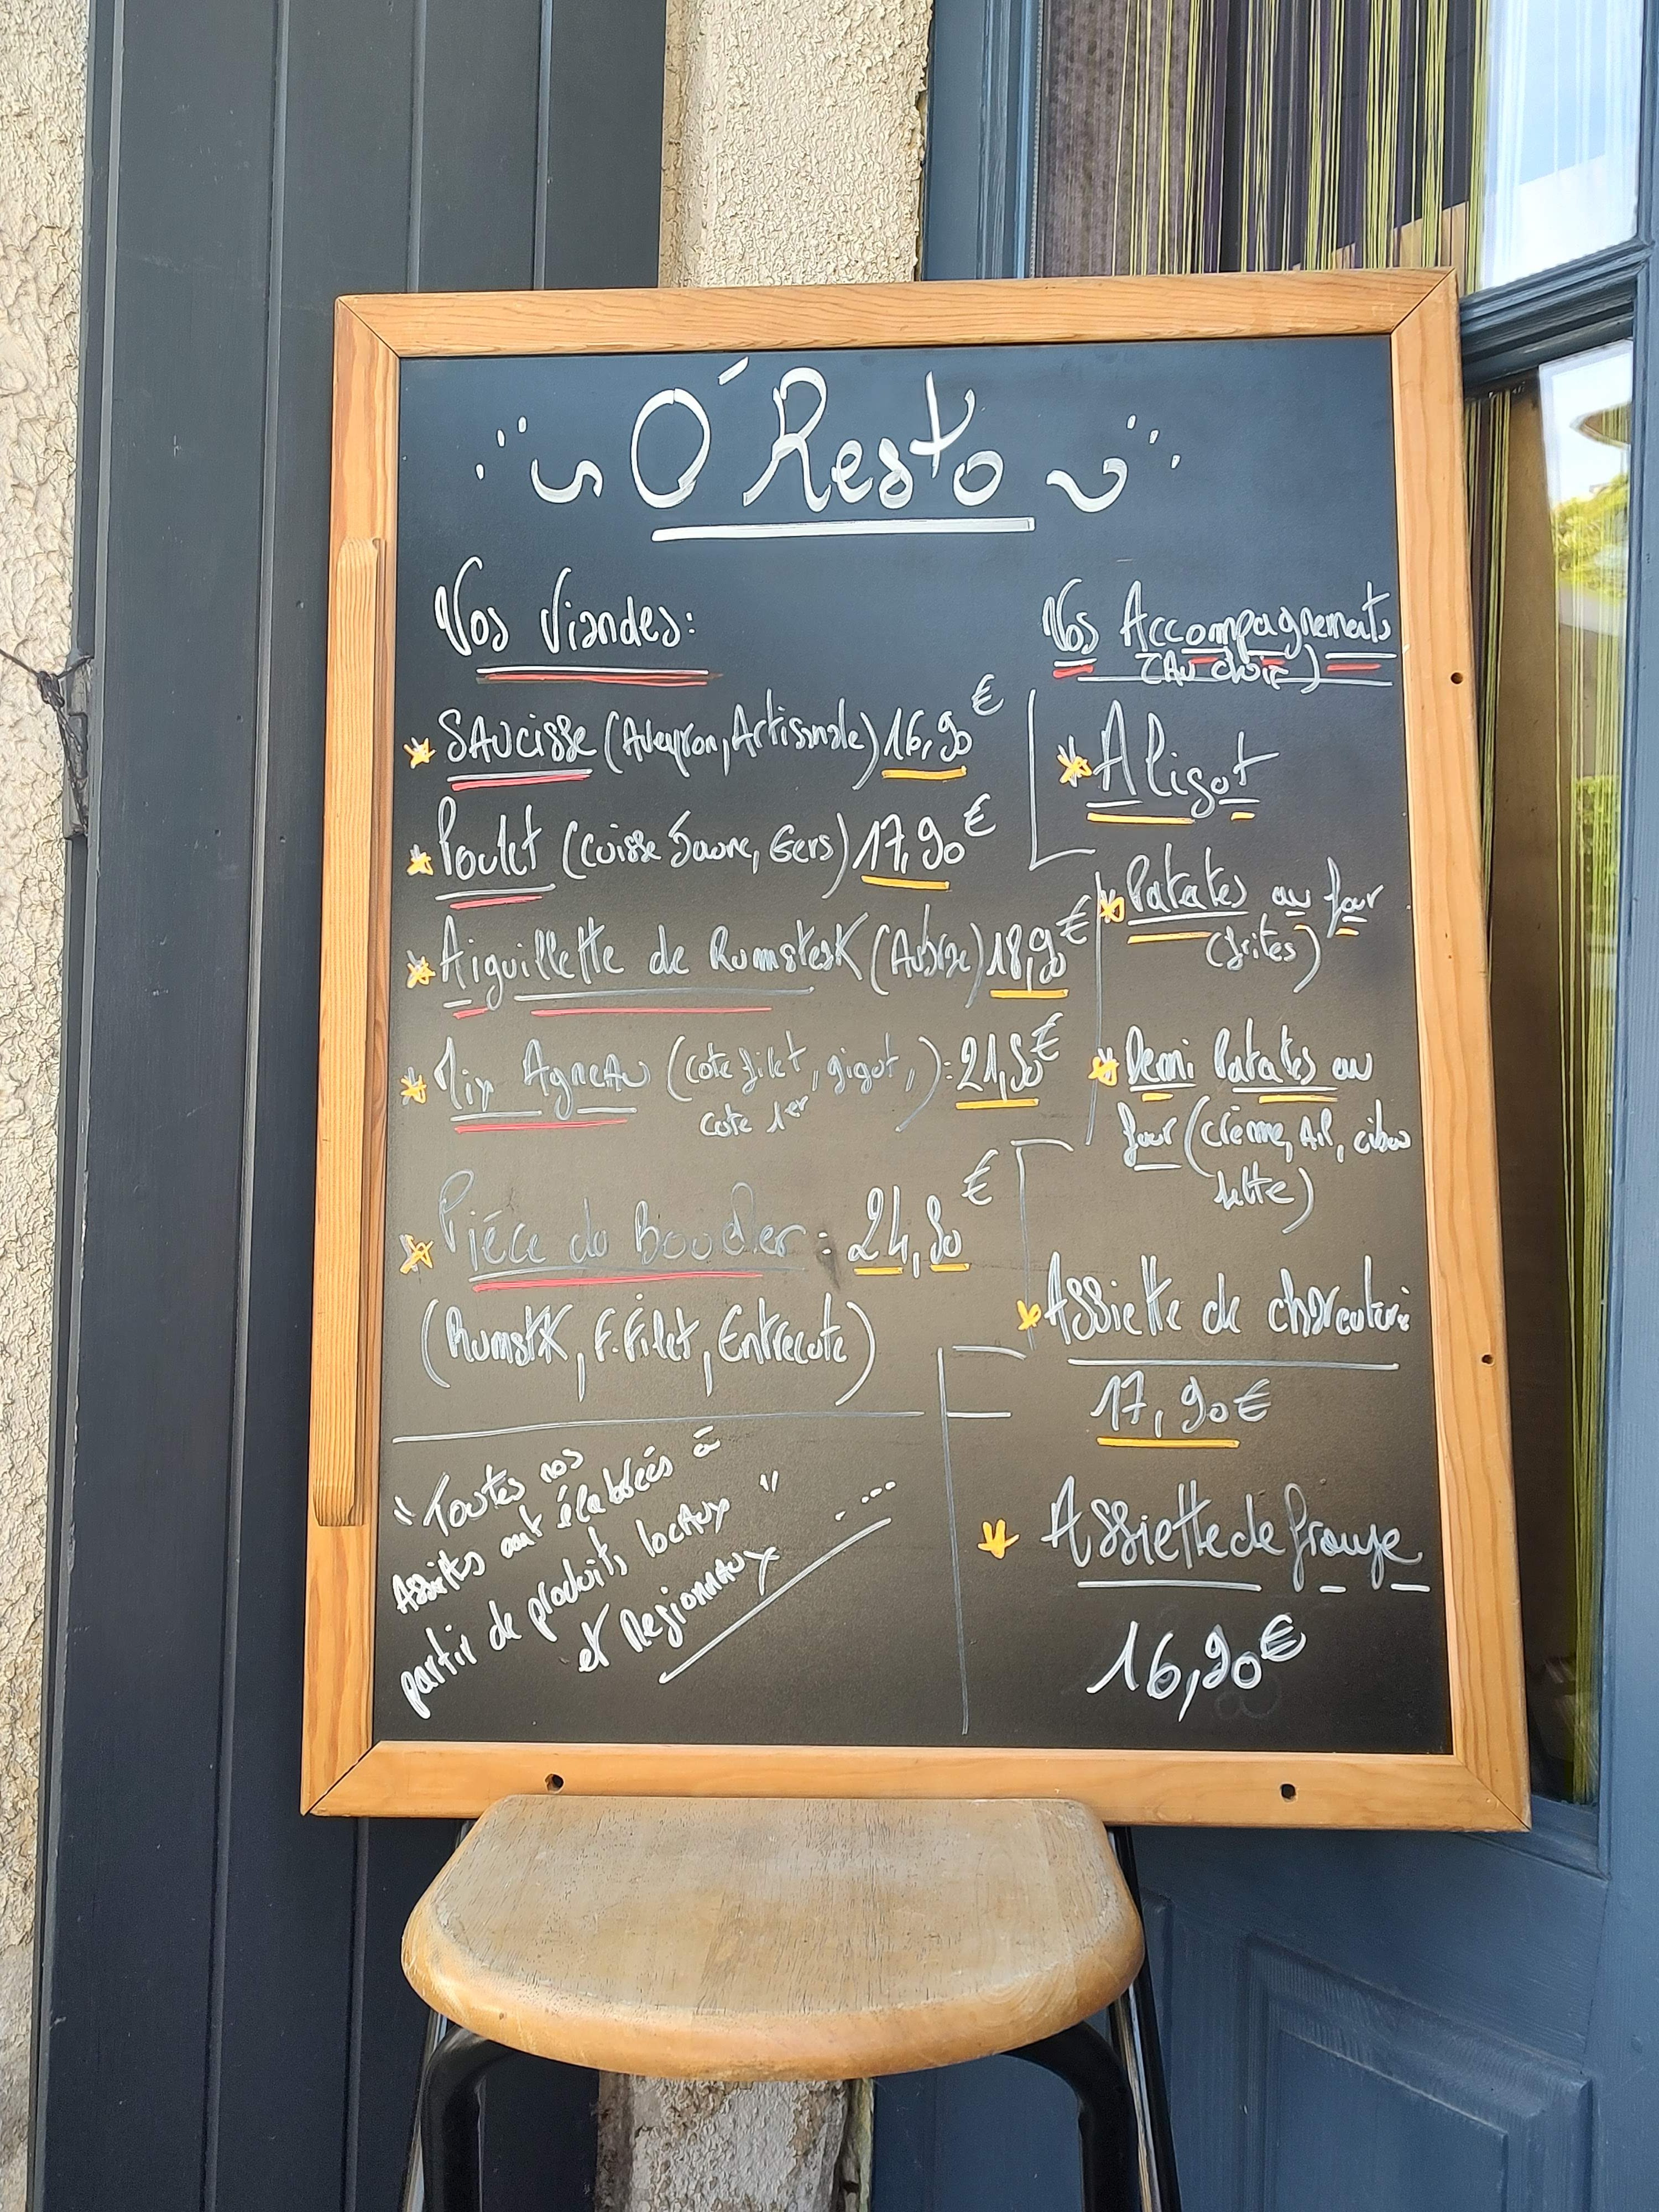 O' Resto
Vos Viandes:
SAUCISSE (Aveyron, Artisanale) 16,90€
Poulet (Cuisse Jaune, Gers) 17,90€
Aiguillette de Rumsteak (Aubrac) 18,90€
Mix Agneau (cote filet, gigot,): 21,90€
cote 1er
Piéce du Boucher: 24,90€
(Rumstk, F.Filet, Entrecote)
"Toutes nos
Assiettes sont élaborées à
partir de produits locaux"
et Regionnaux
Vos Accompagnements
(Au choix)
Aligot
Patates au four
(frites)
Demi Patates au
four (crème, Ail, cibou
lette)
Assiette de charcuterie
17,90€
Assiette de
16,90€